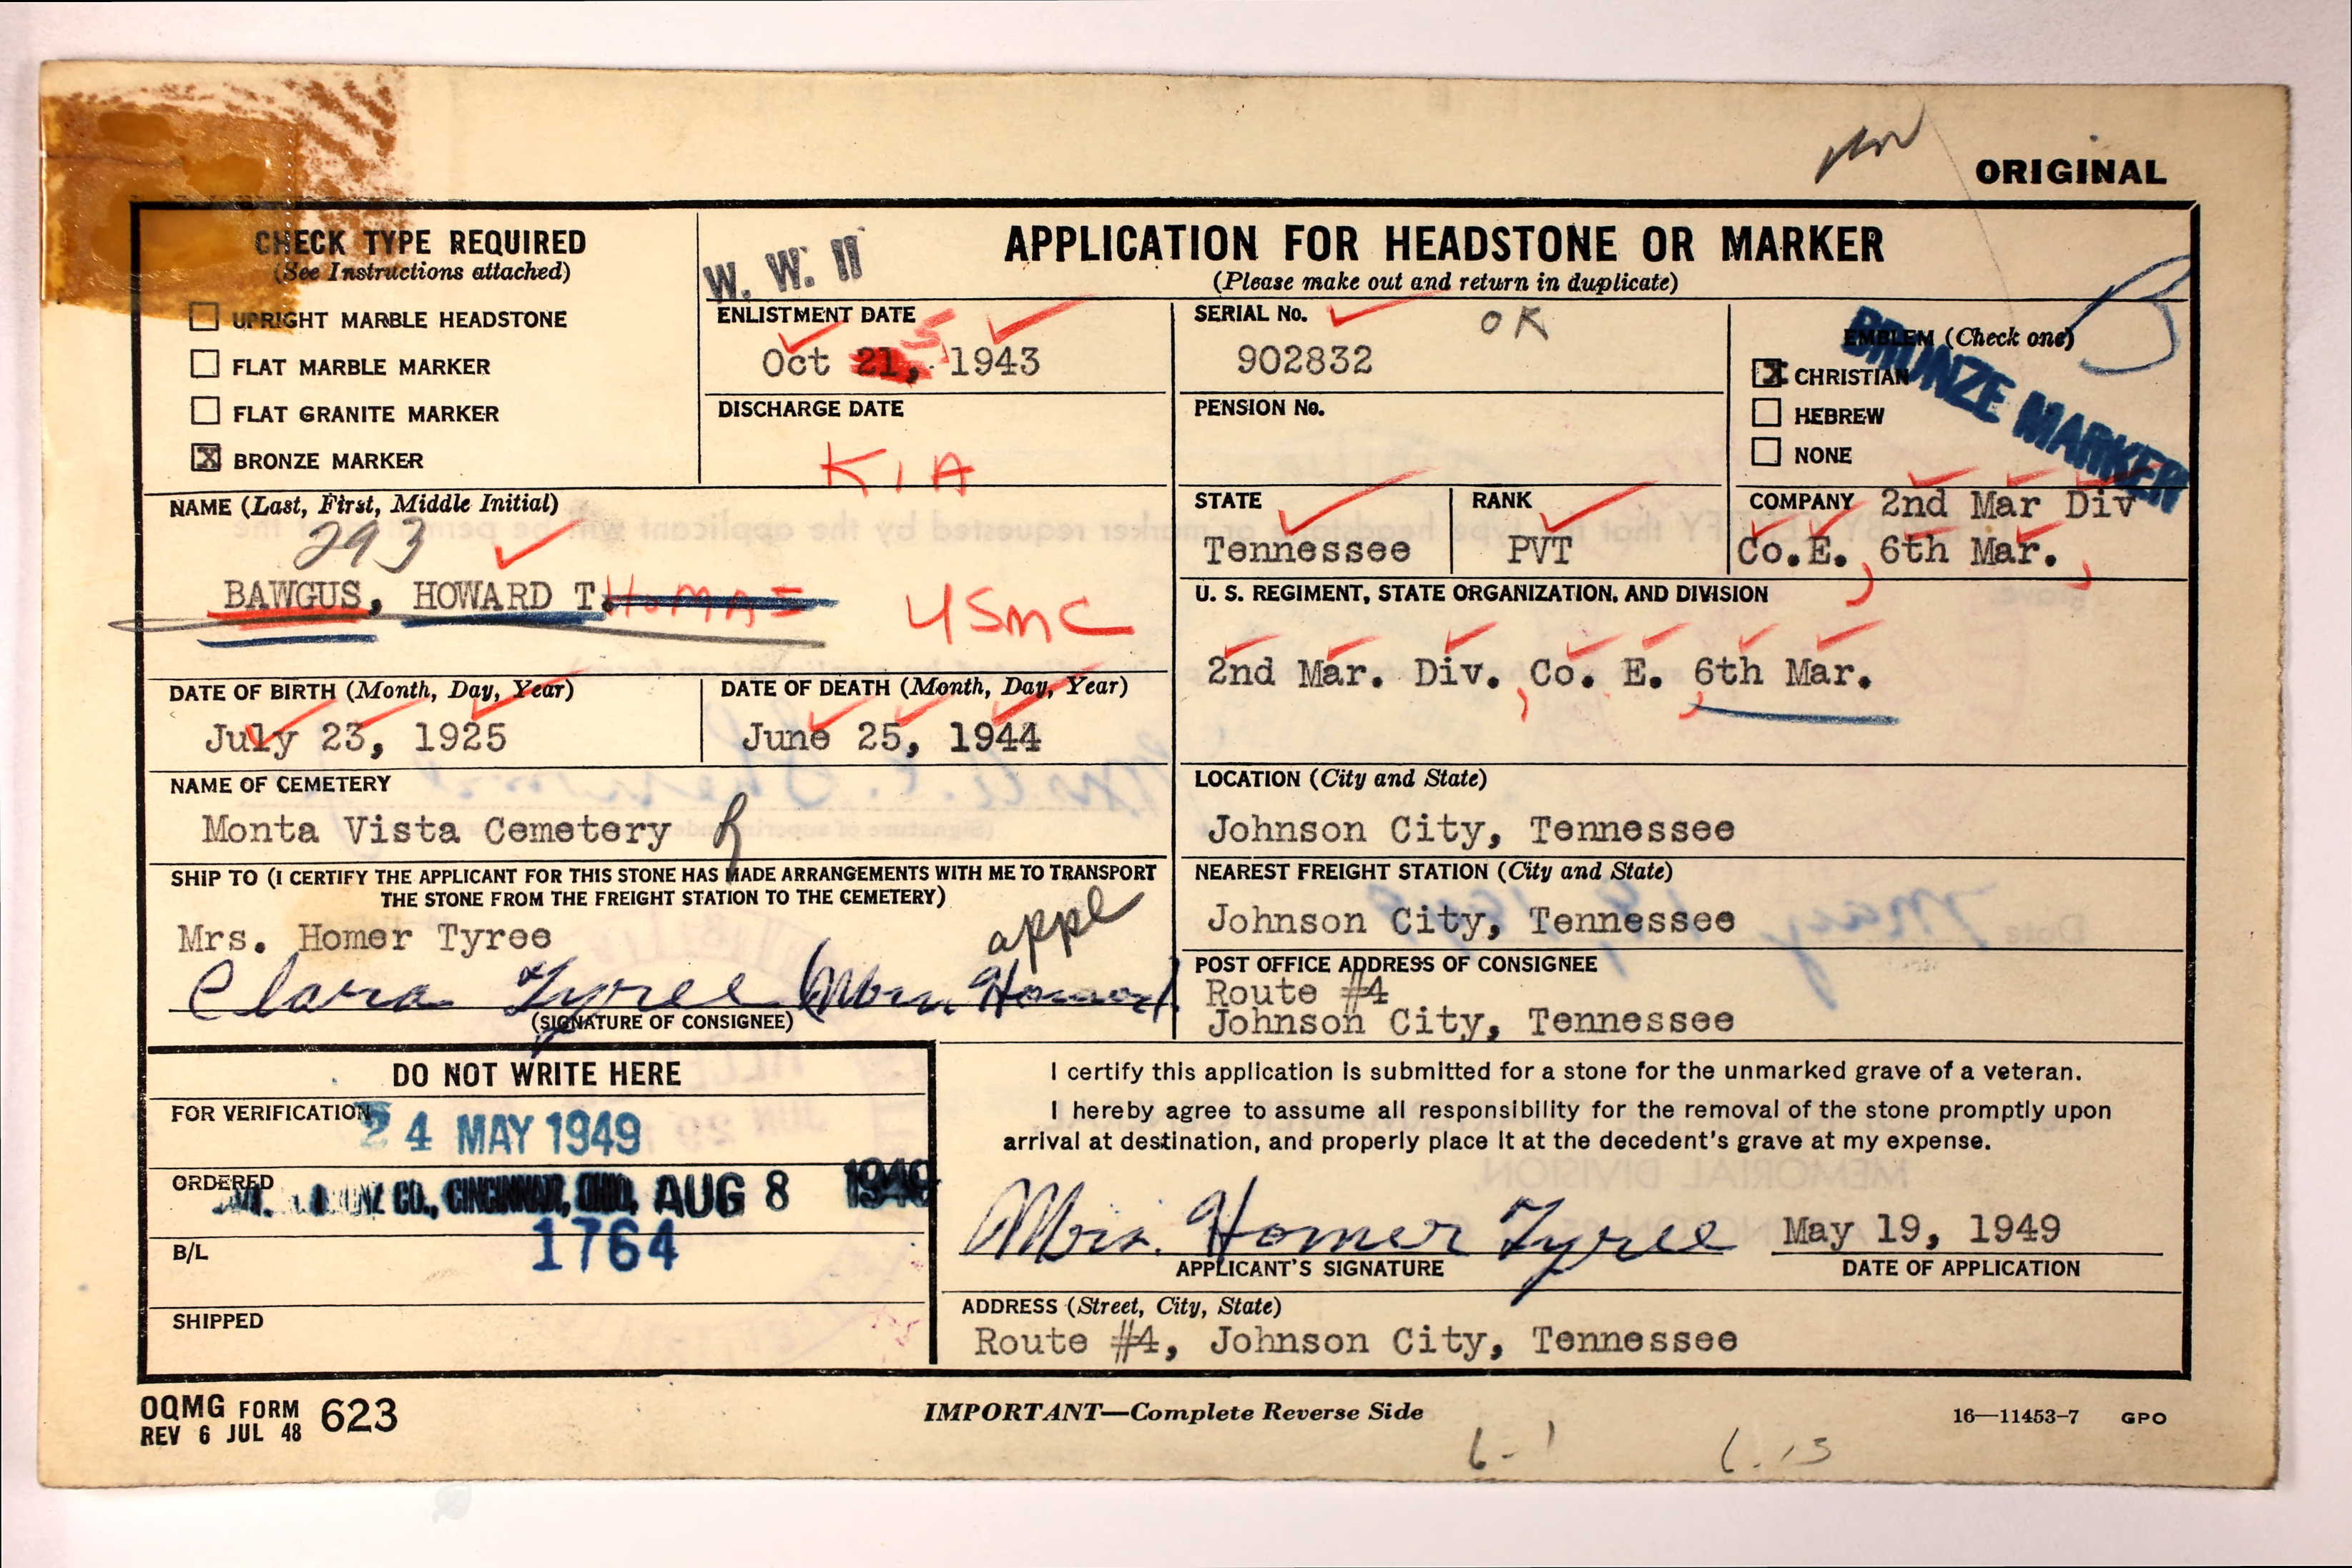 ORIGINAL
CHECK TYPE REQUIRED
(See Instructions attached)
UPRIGHT MARBLE HEADSTONE
FLAT MARBLE MARKER
FLAT GRANITE MARKER
X BRONZE MARKER
W. W. II
APPLICATION FOR HEADSTONE OR MARKER
(Please make out and return in duplicate)
ENLISTMENT DATE
5
Oct 21, 1943
SERIAL No.
OK
902832
EMBLEM (Check one)
B
X CHRISTIAN
HEBREW
NONE
BRONZE MARKER
DISCHARGE DATE
KIA
PENSION No.
NAME (Last, First, Middle Initial)
293
BAWGUS, HOWARD T. HOMAS
USMC
STATE
Tennessee
RANK
PVT
COMPANY 2nd Mar Div
Co.E., 6th Mar.
U. S. REGIMENT, STATE ORGANIZATION, AND DIVISION
2nd Mar. Div., Co. E., 6th Mar.
DATE OF BIRTH (Month, Day, Year)
July 23, 1925
DATE OF DEATH (Month, Day, Year)
June 25, 1944
NAME OF CEMETERY
Monta Vista Cemetery
LOCATION (City and State)
Johnson City, Tennessee
SHIP TO (I CERTIFY THE APPLICANT FOR THIS STONE HAS MADE ARRANGEMENTS WITH ME TO TRANSPORT
THE STONE FROM THE FREIGHT STATION TO THE CEMETERY)
Mrs. Homer Tyree
appl
Clara Tyree (Mrs. Homer)
(SIGNATURE OF CONSIGNEE)
NEAREST FREIGHT STATION (City and State)
Johnson City, Tennessee
POST OFFICE ADDRESS OF CONSIGNEE
Route #4
Johnson City, Tennessee
DO NOT WRITE HERE
FOR VERIFICATION
24 MAY 1949
ORDERED
CO., CINCINNATI, OHIO, AUG 8 1949
1764
B/L
SHIPPED
I certify this application is submitted for a stone for the unmarked grave of a veteran.
I hereby agree to assume all responsibility for the removal of the stone promptly upon
arrival at destination, and properly place it at the decedent's grave at my expense.
Mrs. Homer Tyree
May 19, 1949
APPLICANT'S SIGNATURE
DATE OF APPLICATION
ADDRESS (Street, City, State)
Route #4, Johnson City, Tennessee
OQMG FORM 623
REV 6 JUL 48
IMPORTANT—Complete Reverse Side
16—11453-7 GPO